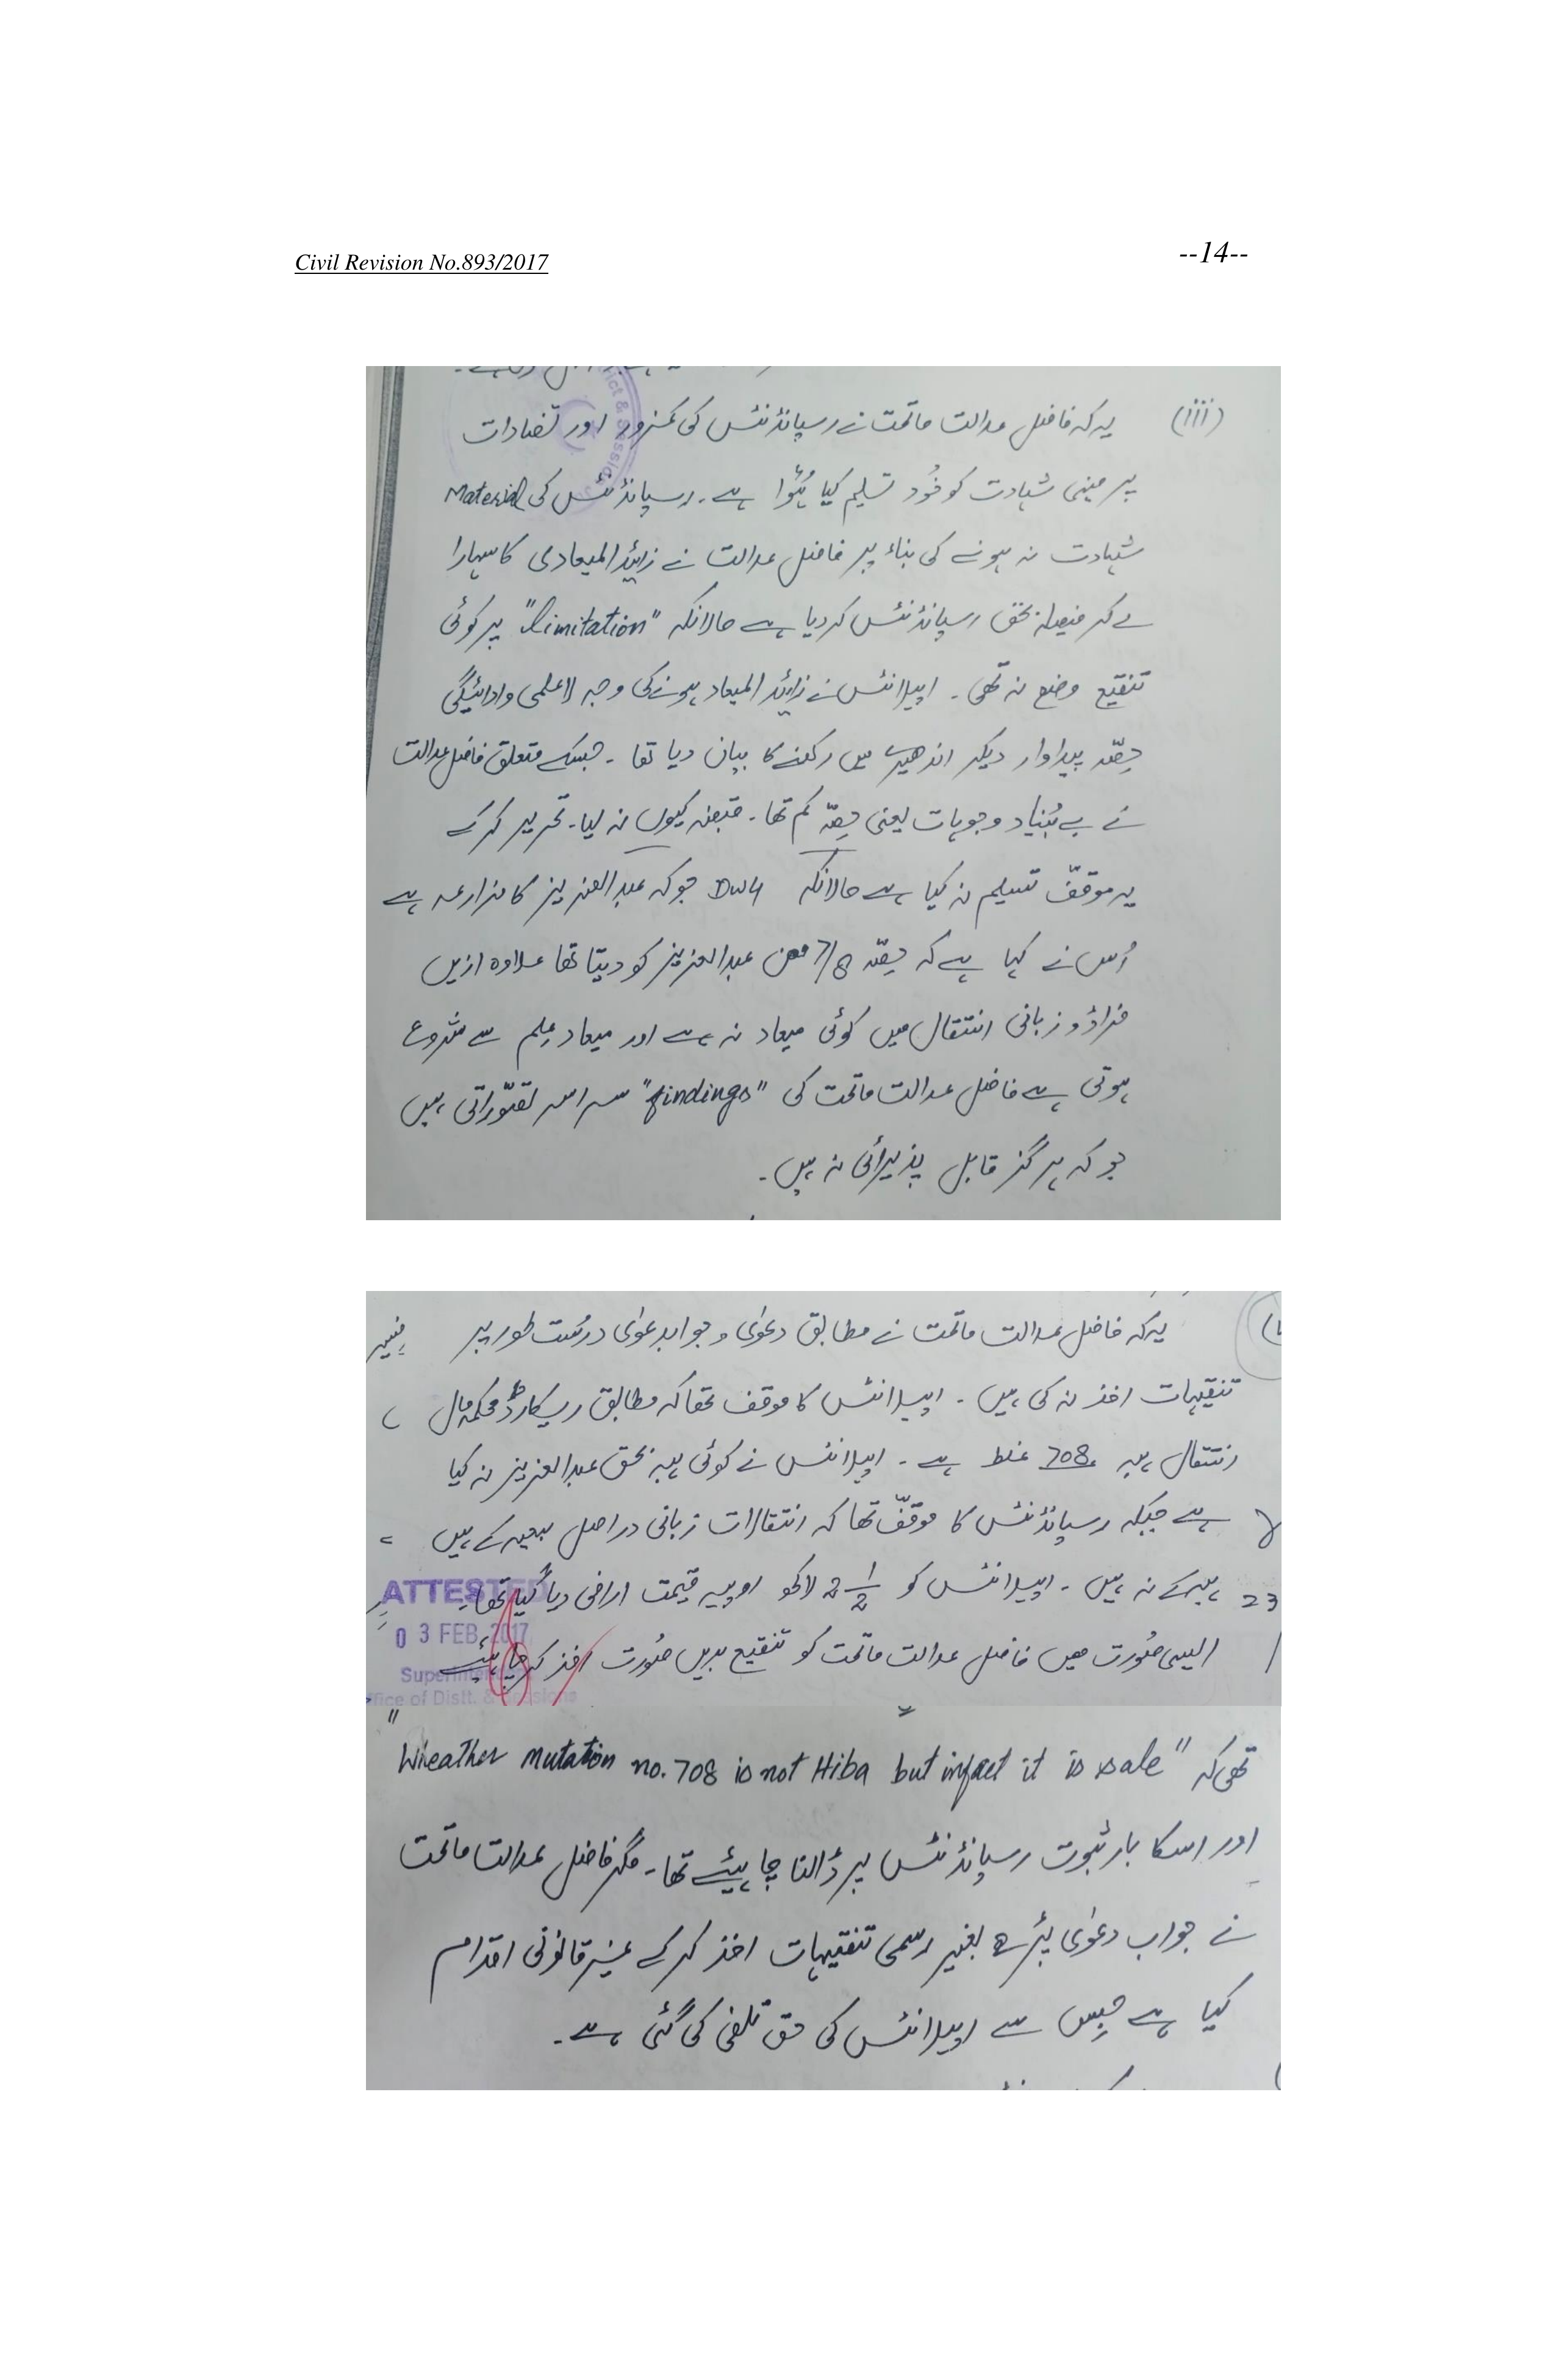 Civil Revision No.893/2017
--14--
(iii) یہ کہ فاضل عدالت ماتحت نے رسپانڈنٹس کی کمزور اور تضادات
پر مبنی شہادت کو خُود تسلیم کیا ہُوا ہے۔ رسپانڈنٹس کی Material
شہادت نہ ہونے کی بناء پر فاضل عدالت نے زائیدالمیعادی کا سہارا
لے کر فیصلہ بحق رسپانڈنٹس کر دیا ہے حالانکہ "limitation" پر کوئی
تنقیع وضع نہ تھی۔ اپیلانٹس نے زائید المیعاد ہونے کی وجہ لاعلمی و ادائیگی
حِصّہ پیداوار دیکر اندھیرے میں رکھنے کا بیان دیا تھا۔ جسکے متعلق فاضل عدالت
نے بے بُنیاد وجوہات یعنی حِصّہ کم تھا۔ قبضہ کیوں نہ لیا۔ تحریر کرکے
یہ موقفّ تسلیم نہ کیا ہے حالانکہ DW4 جو کہ عبدالعزیز کا مزارعہ ہے
اُس نے کہا ہے کہ حِصّہ 7/8 من عبدالعزیز کو دیتا تھا علاوہ ازیں
فراڈ و زبانی انتقال میں کوئی میعاد نہ ہے اور میعاد عِلم سے شروع
ہوتی ہے فاضل عدالت ماتحت کی "findings" سراسر تصّوراتی ہیں
جو کہ ہرگز قابل پذیرائی نہ ہیں۔
یہ کہ فاضل عدالت ماتحت نے مطابق دعوٰی و جوابدعوٰی درُست طور پر
تنقیہات اخذ نہ کی ہیں۔ اپیلانٹس کا موقف تھا کہ مطابق ریکارڈ محکمہ مال
انتقال ہبہ 708 غلط ہے۔ اپیلانٹس نے کوئی ہبہ بحق عبدالعزیز نہ کیا
ہے جبکہ رسپانڈنٹس کا موقفّ تھا کہ انتقالات زبانی دراصل بیعہ کے ہیں
23 ہبہ کے نہ ہیں۔ اپیلانٹس کو 2 1/2 لاکھ روپیہ قیمت اراضی دیا گیا تھا۔
ATTESTED
03 FEB 2017
ایسی صُورت میں فاضل عدالت ماتحت کو تنقیع بدیں صُورت اخذ کرنا چاہیئے
Office of Distt. & Sessions
تھی کہ "Wheather mutation no. 708 is not Hiba but infact it is sale"
اور اسکا بار ثبوت رسپانڈنٹس پر ڈالنا چاہیئے تھا۔ مگر فاضل عدالت ماتحت
نے جواب دعوٰی پڑھے بغیر رسمی تنقیہات اخذ کرکے غیر قانونی اقدام
کیا ہے جِس سے اپیلانٹس کی حق تلفی کی گئی ہے۔